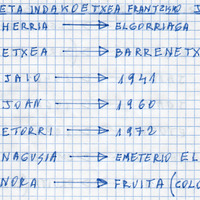 ETA INDAKOETXEA FRANTZISKO J
HERRIA → ELGORRIAGA
ETXEA → BARRENETX
JAIO → 1941
JOAN → 1960
ETORRI → 1972
NAGUSIA → EMETERIO EL
NORA → FRUITA (COLO